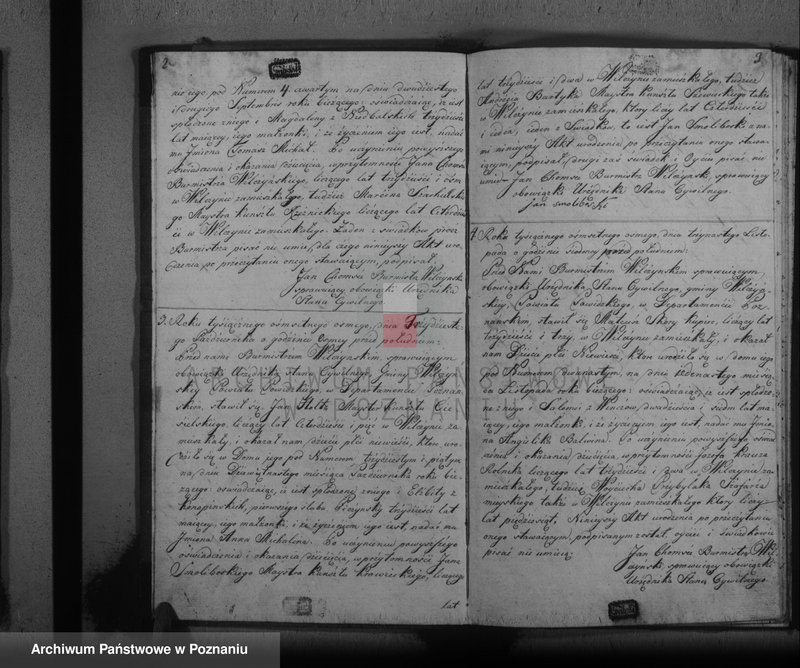 2
niejego pod Numerem 4 czwartym na dniu dwudziestego
drugiego Septembra roku bieżącego: oświadczając, iż jest
spłodzone z niego i Magdaleny z trzydzieści
lat mającej, jego małżonki, i że życzeniem jego jest, nadać
mu Imiona Tomasz Michał. Po uczynieniu powyższego
oświadczenia i okazania dziecięcia, w przytomności Jana Chomsa
Burmistrza Wilczyńskiego, liczącego lat trzydzieści i ośm
w Wilczynie zamieszkałego, tudzież Marcina
go Maystra Kunsztu Rzeźnickiego liczącego lat Czterdzieś
ci w Wilczynie zamieszkałego. Żaden z świadków prócz
Burmistrza pisać nie umie, dla czego ninieyszy Akt uro
dzenia po przeczytaniu onego stawaiącym, podpisał
Jan Chomsu Burmistrz Wilczyński
sprawuiący obowiązki Urzędnika
Stanu Cywilnego
3. Roku tysiącznego ośmsetnego osmego, dnia Trzydzieste-
go Października o godzinie Osmey przed południem:
Przed nami Burmistrzem Wilczyńskim, sprawuiącym
obowiązki Urzędnika Stanu Cywilnego Gminy Wilczyń
skiey Powiatu Powidzkiego, w Departamencie Poznań
skim, stawił się Jan Maystr Kunsztu Cie
sielskiego liczący lat Czterdzieści i pięć w Wilczynie za
mieszkały i okazał nam dziecie płci niewieści, które uro
dziło się w Domu jego pod Numerem trzydziestym i piątym
na dniu Dziewiętnastego miesiąca Października roku bie
żącego: oświadczając, iż jest spłodzone z niego i Elżbiety z
Konopinskich, pierwszego ślubu trzydzieści lat
mającey, jego małżonki, i że życzeniem jego jest, nadać mu
Imiona Anna Michalina. Po uczynieniu powyższego
oświadczenia i okazania dziecięcia, w przytomności Jana
Smoliborskiego Maystra kunsztu krawieckiego, liczącego
lat
3
lat trzydzieści i dwa w Wilczynie zamieszkałego, tudzież
Andrzeja Bartyka Maystra Kunsztu Szewieckiego także
w Wilczynie zamieszkałego, który liczy lat Czterdzieści
i ieden z Świadków, to iest Jan Smoliborski z na
mi ninieyszy Akt urodzenia po Przeczytaniu onego stawa
iącym, podpisał, drugi zaś świadek i Oyciec pisać nie
umieią Jan Chomsu Burmistrz Wilczyński, sprawuiący
obowiązki Urzędnika Stanu Cywilnego.
Jan smoliborski
4. Roku tysiącznego ośmsetnego osmego, dnia trzynastego Listo
pada o godzinie siodmey przed południem:
Przed Nami Burmistrzem Wilczyńskim sprawuiącym
obowiązki Urzędnika Stanu Cywilnego, gminy Wilczyń
skiey, Powiatu Powidzkiego, w Departamencie Poz
nańskim, stawił się Mateusz Skory kupiec, liczący lat
trzydzieści i trzy, w Wilczynie zamieszkały, i okazał
nam Dziecie płci Niewieści, które urodziło się w domu jego
pod Numerem dwanastym, na dniu iedenastego miesią
ca Listopada roku bieżącego: oświadczając, iż iest spłodzo
ne z niego i Salomei z Winczow, dwadzieścia i siedm lat ma
iącey, jego małżonki, i że życzeniem jego iest, nadać mu Imio
na Angielika Balwina. Po uczynieniu powyższego oświad
czenia i okazania dziecięcia, w przytomności Jozefa krawca
Rolnika liczącego lat trzydzieści i dwa w Wilczynie za
mieszkałego, tudzież Woyciecha Przybylaka Szafarza
mieyskiego także w Wilczynie zamieszkałego który liczy
lat piędziesiąt, Ninieyszy Akt urodzenia po przeczytaniu
onego stawaiącym, podpisanym został, oyciec i świadkowie
pisać nie umieią
Jan Chomsu Burmistrz Wil
czyński sprawuiący obowiązki
Urzędnika Stanu Cywilnego
ARCHIWUM PAŃSTWOWE
W POZNANIU
Archiwum Państwowe w Poznaniu